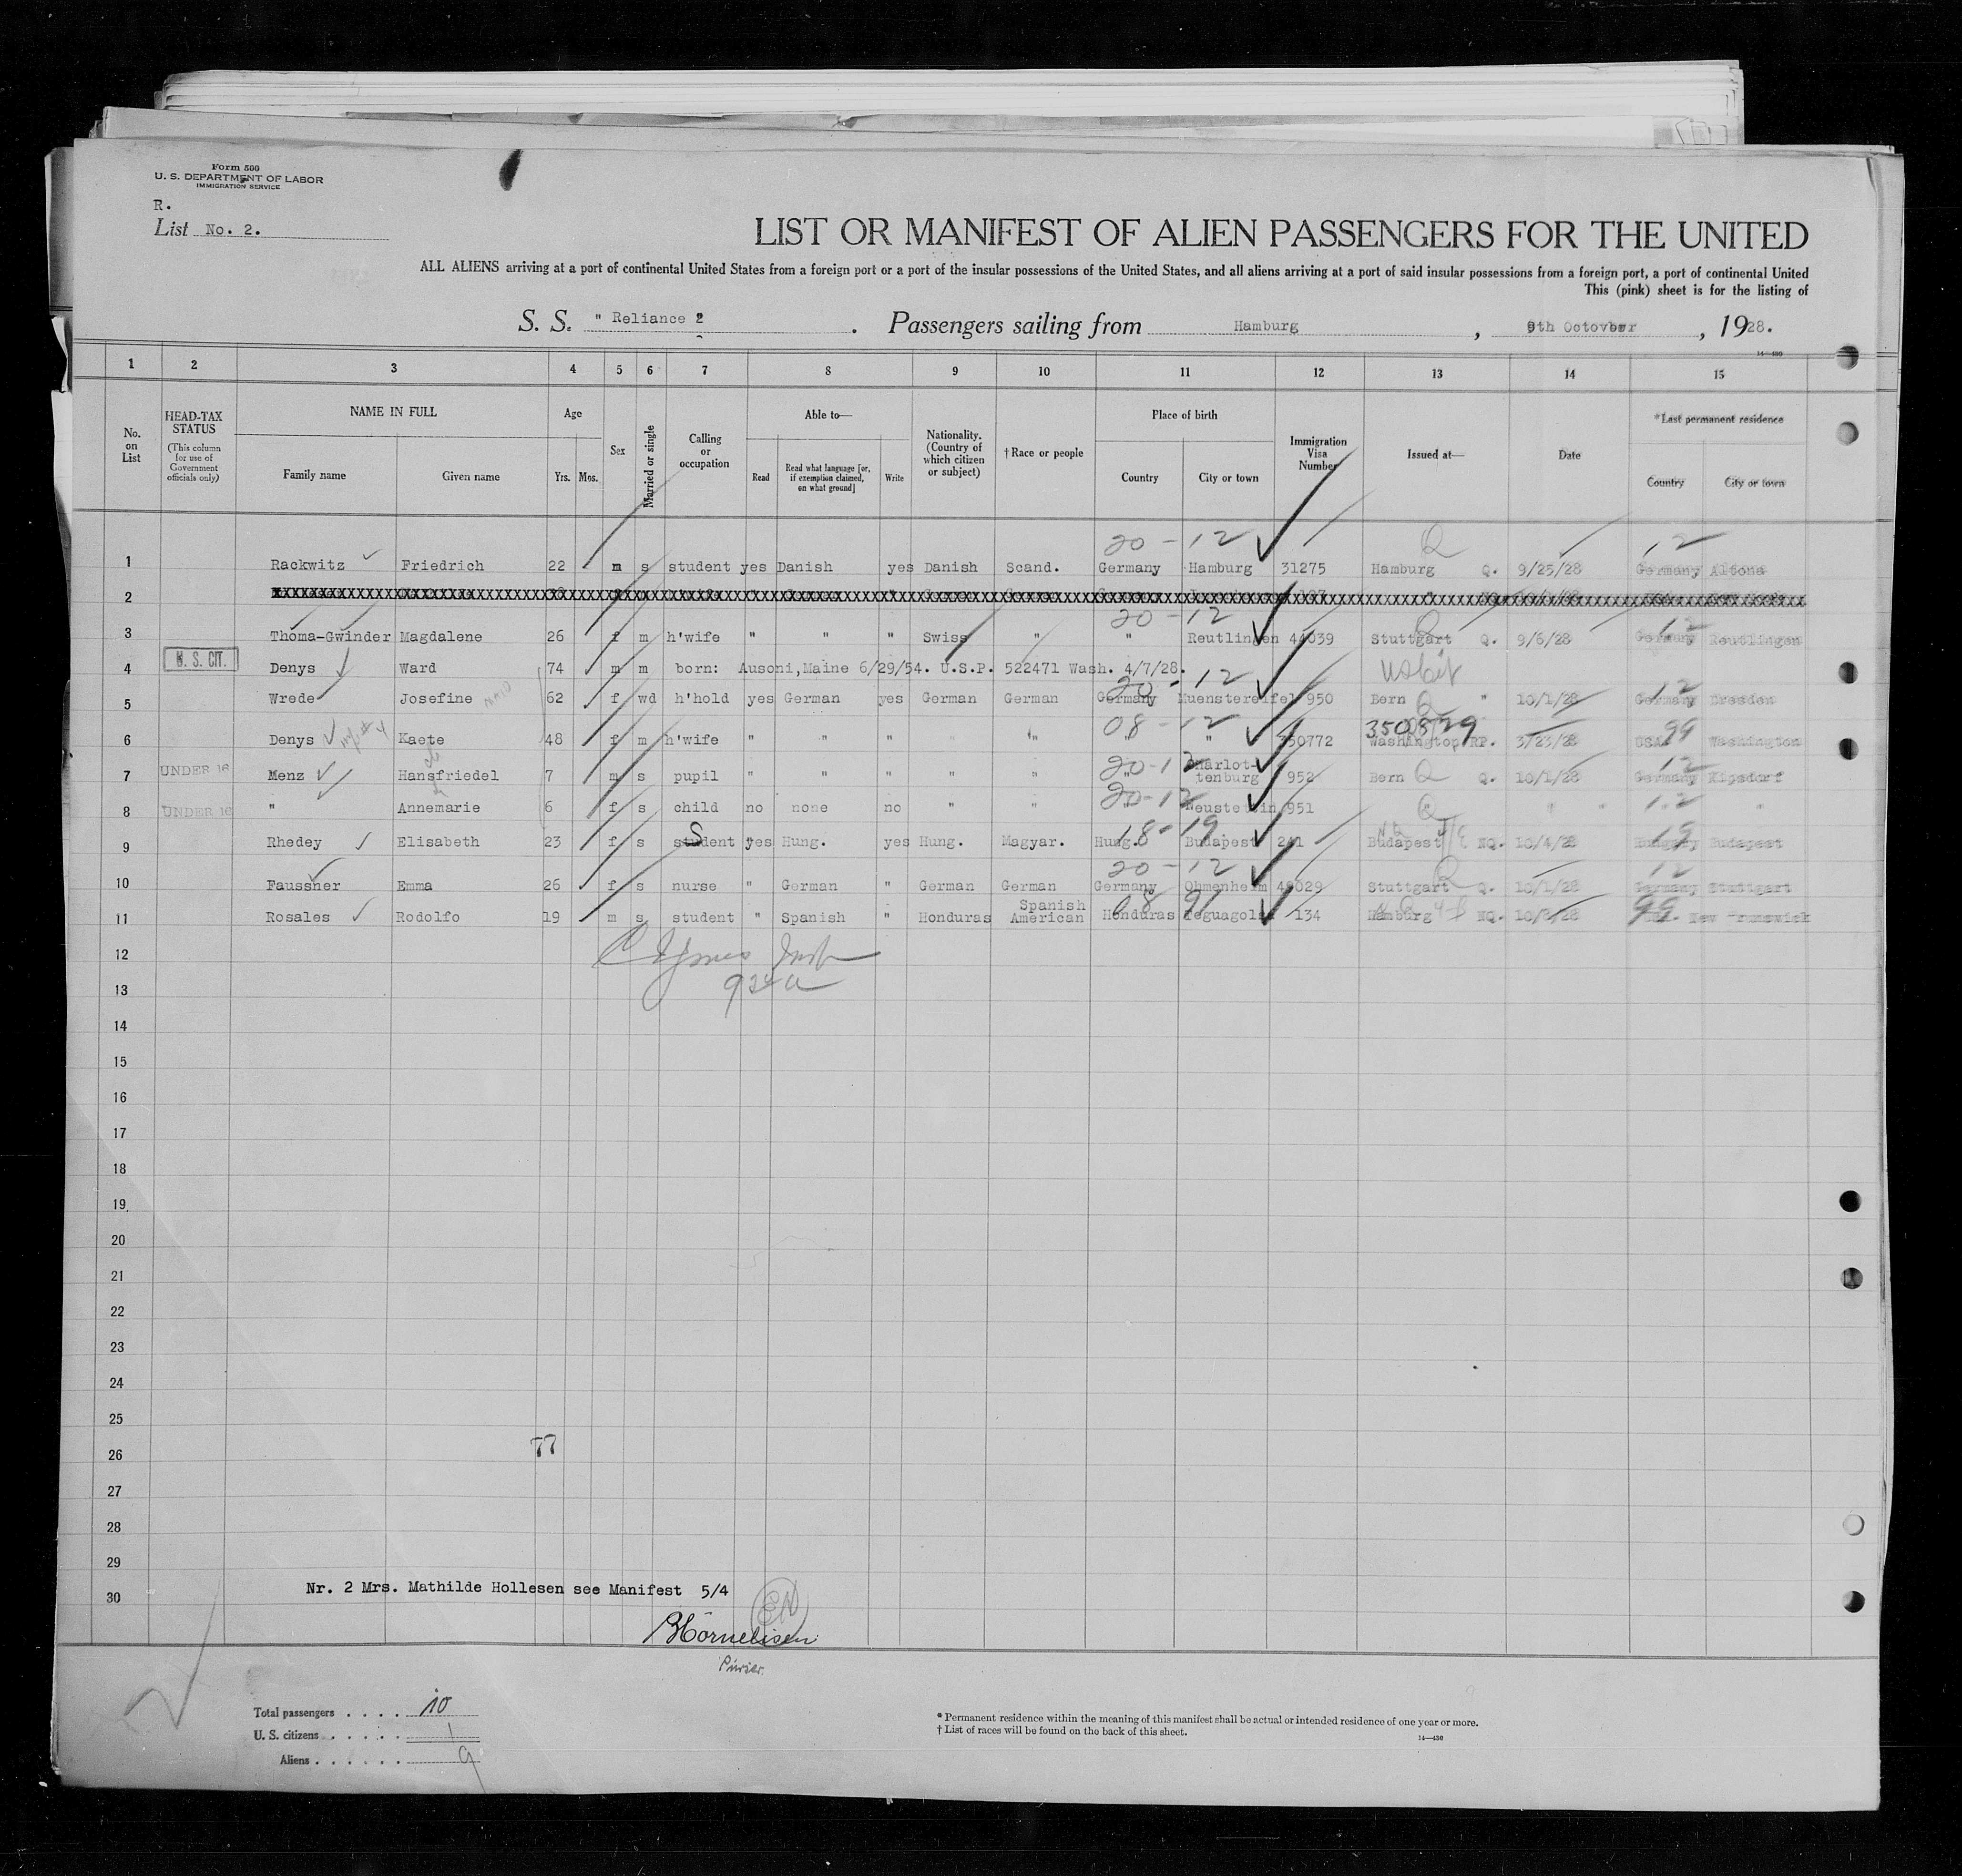 Form 500
U. S. DEPARTMENT OF LABOR
IMMIGRATION SERVICE
R.
List No. 2.
LIST OR MANIFEST OF ALIEN PASSENGERS FOR THE UNITED
ALL ALIENS arriving at a port of continental United States from a foreign port or a port of the insular possessions of the United States, and all aliens arriving at a port of said insular possessions from a foreign port, a port of continental United
This (pink) sheet is for the listing of
S. S. " Reliance . Passengers sailing from Hamburg , 9th Octovber , 1928.
1 2 3 4 5 6 7 8 9 10 11 12 13 14 15
No. on List
HEAD-TAX STATUS
(This column for use of Government officials only)
NAME IN FULL
Family name Given name
Age
Yrs. Mos.
Sex
Married or single
Calling or occupation
Able to—
Read Read what language [or, if exemption claimed, on what ground] Write
Nationality. (Country of which citizen or subject)
†Race or people
Place of birth
Country City or town
Immigration Visa Number
Issued at—
Date
*Last permanent residence
Country City or town
20 - 12 Q 12
1 Rackwitz Friedrich 22 m s student yes Danish yes Danish Scand. Germany Hamburg 31275 Hamburg Q. 9/25/28 Germany Altona
2
20 - 12 Q 12
3 Thoma-Gwinder Magdalene 26 f m h'wife " " " Swiss " " Reutlingen 44039 Stuttgart Q. 9/6/28 Germany Reutlingen
4 U. S. CIT. Denys Ward 74 m m born: Ausoni,Maine 6/29/54. U.S.P. 522471 Wash. 4/7/28. US Cit
20 - 12 Q 12
5 Wrede Josefine 62 f wd h'hold yes German yes German German Germany Muenstereifel 950 Bern " 10/1/28 Germany Dresden
08 - 12 350829 99
6 Denys Kaete 48 f m h'wife " " " " " " " 350772 Washington RP. 3/23/28 USA. Washington
20-12 Q 12
7 UNDER 16 Menz Hansfriedel 7 m s pupil " " " " " " Charlot-tenburg 952 Bern Q. 10/1/28 Germany Kipsdorf
20-12 Q 12
8 UNDER 16 " Annemarie 6 f s child no none no " " " Neustettin 951 " " "
18-19 19
9 Rhedey Elisabeth 23 f s student yes Hung. yes Hung. Magyar. Hung. Budapest 241 Budapest NQ. 10/4/28 Hungary Budapest
20 - 12 Q 12
10 Faussner Emma 26 f s nurse " German " German German Germany Ohmenheim 48029 Stuttgart Q. 10/1/28 Germany Stuttgart
08 91 99
11 Rosales Rodolfo 19 m s student " Spanish " Honduras Spanish American Honduras Teguagolsa 134 Hamburg NQ. 10/8/28 USA. New Brunswick
12
13
14
15
16
17
18
19
20
21
22
23
24
25
26 77
27
28
29
30
Nr. 2 Mrs. Mathilde Hollesen see Manifest 5/4
Purser.
Total passengers . . . . 10
U. S. citizens . . . . . 1
Aliens . . . . . . 9
* Permanent residence within the meaning of this manifest shall be actual or intended residence of one year or more.
† List of races will be found on the back of this sheet.
14—430